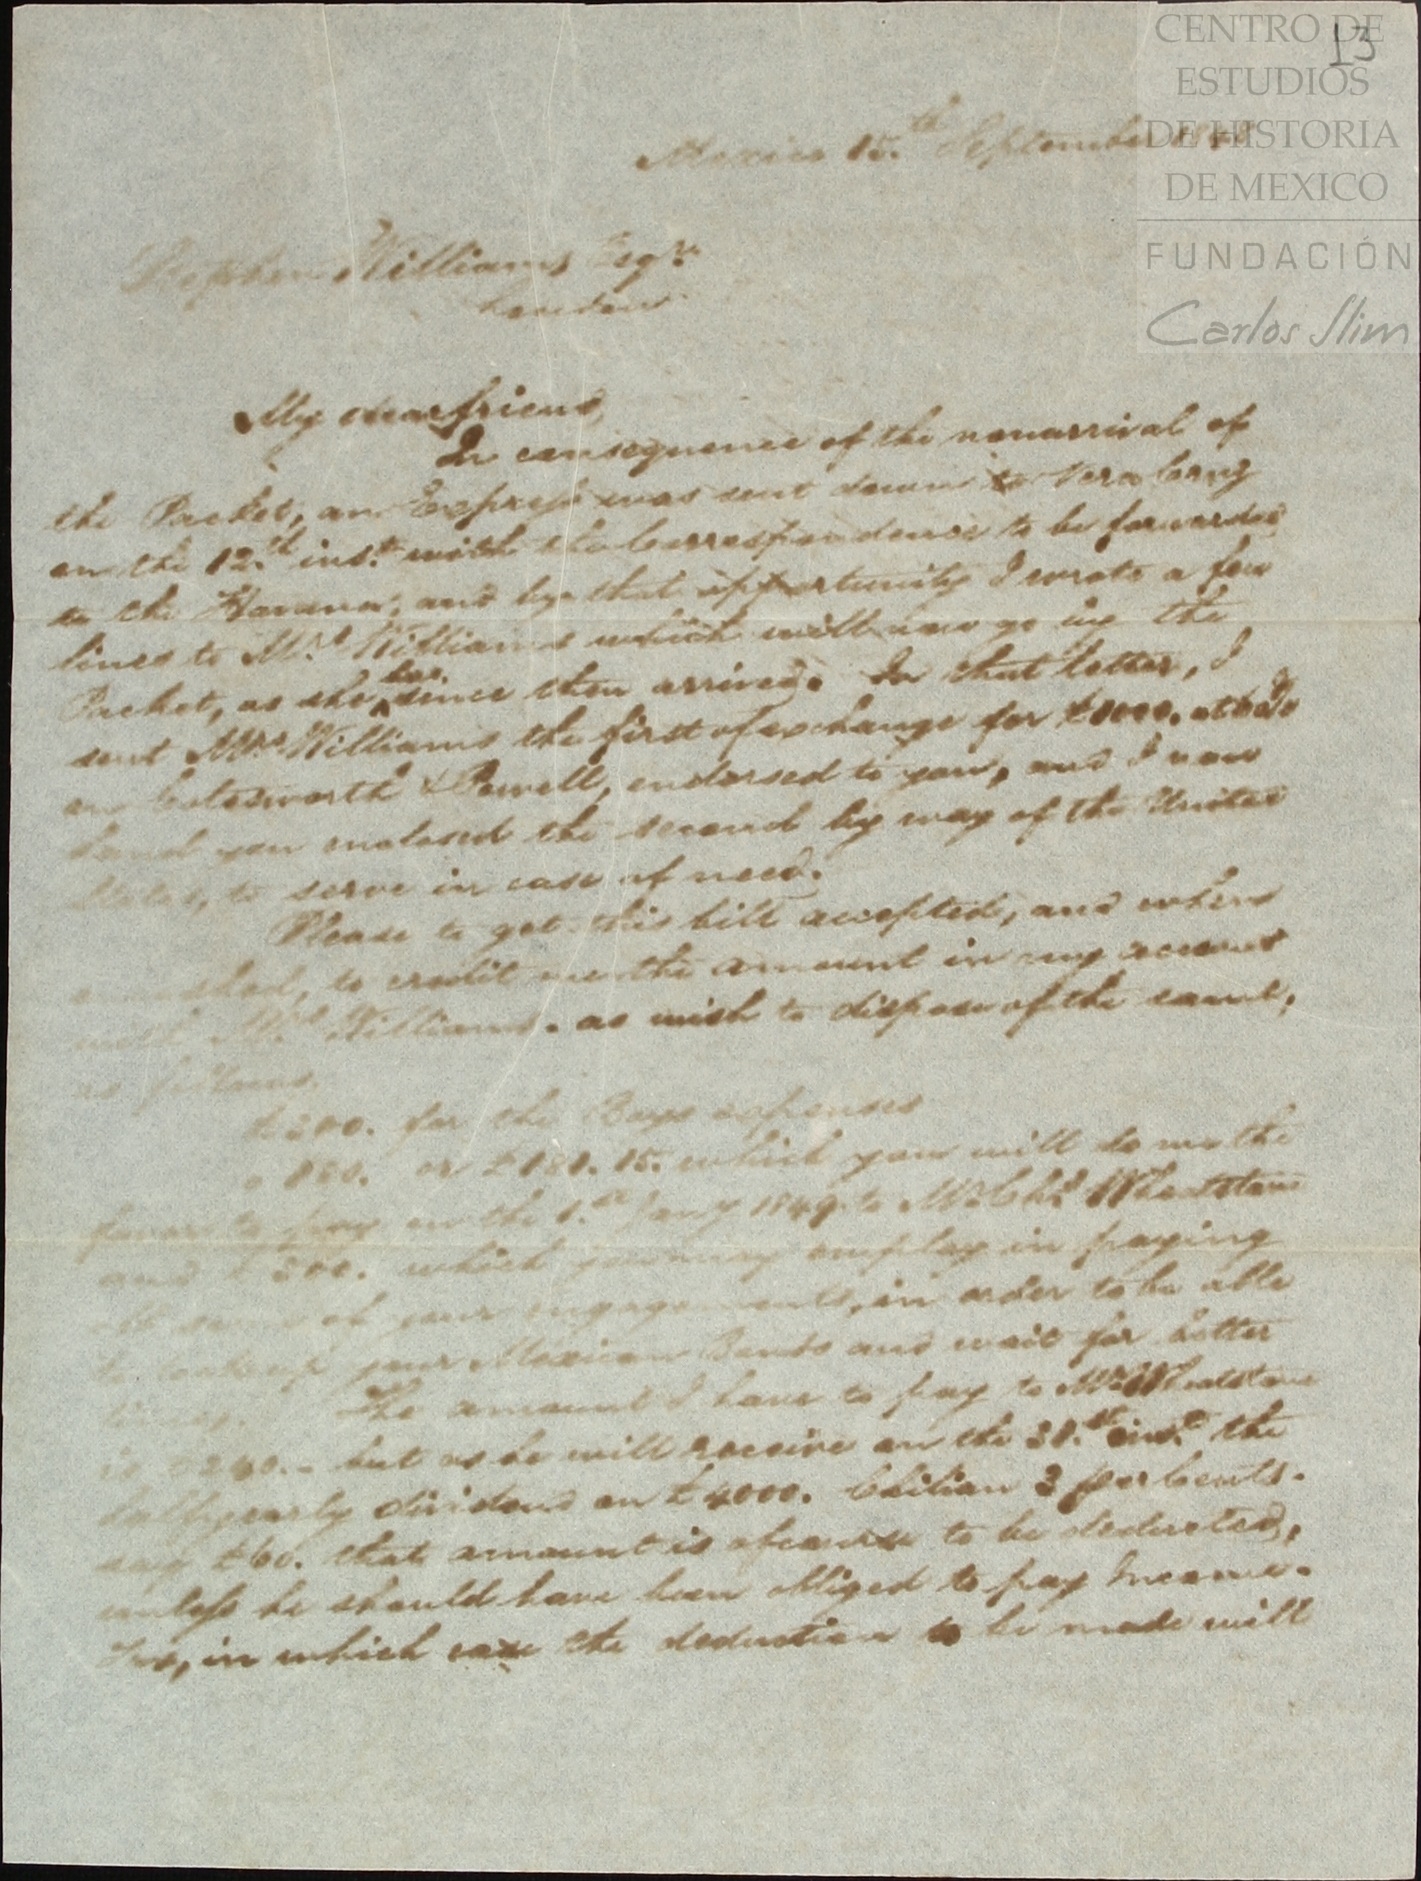 CENTRO DE
ESTUDIOS
DE HISTORIA
DE MEXICO
FUNDACIÓN
Carlos Slim
13
Mexico 15.th September 1848
Stephen Williams Esqr.
London
My dear friend,
In consequence of the nonarrival of
the Packet, an Express was sent down to Vera Cruz
on the 12.th inst. with the Correspondence to be forwarded
to the Havana, and by that opportunity I wrote a few
lines to Mrs. Williams which will now go by the
Packet, as she has since then arrived. In that letter, I
sent Mrs. Williams the first of exchange for £1000.
on Cotesworth & Powell, endorsed to you, and I now
hand you enclosed the second by way of the United
States, to serve in case of need.
Please to get this bill accepted, and when
to credit me the amount in my account
with Mrs. Williams. as wish to dispose of the same,
as follows.
£200. for the Boys expenses
" 180. or £181.15. which you will do me the
favor to pay on the 1.st Jany 1849. to Mr. Chs. Wheatstone
and £ 200. which you may employ in paying
off some of your engagements, in order to be able
to lock up your Mexican Bonds and wait for better
times. The amount I have to pay to Mr. Wheatstone
is £240.- but as he will receive on the 30.th inst. the
half yearly dividend on £4000. Chilian 3 per Cents.
say £60. that amount is of course to be deducted,
unless he should have been obliged to pay Income-
Tax, in which case the deduction to be made will